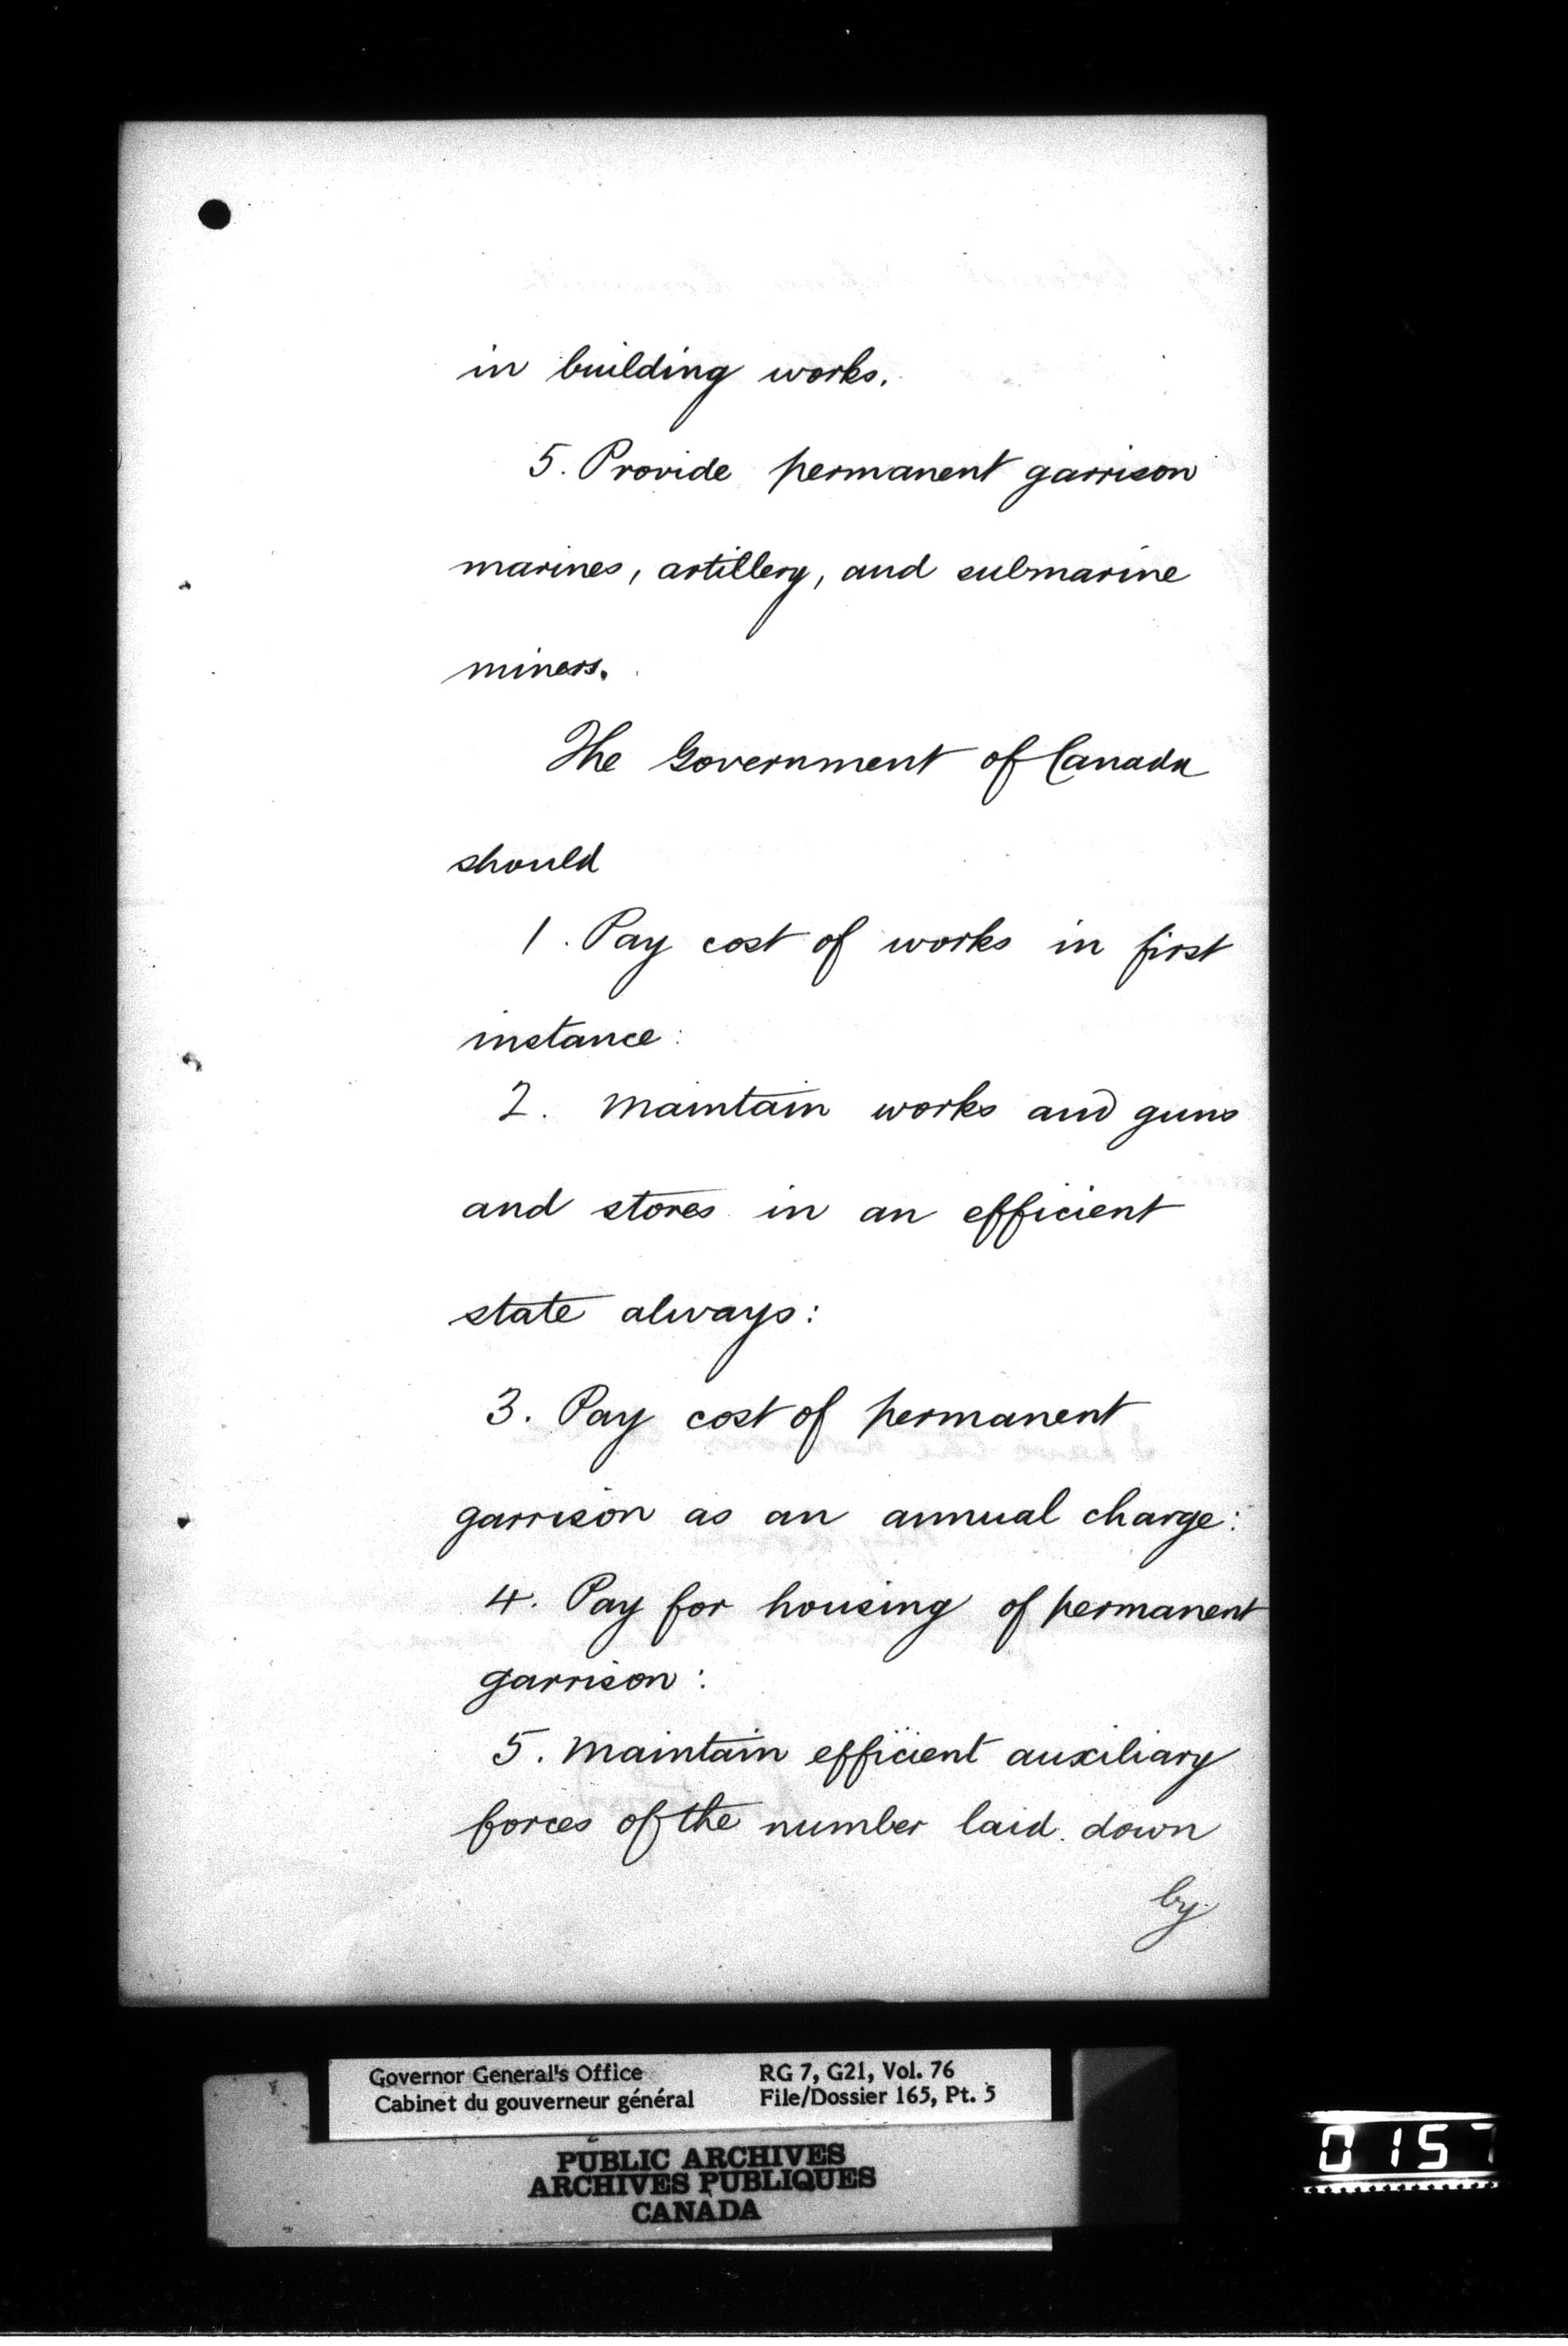 in building works.
5. Provide permanent garrison
marines, artillery, and submarine
miners.
The Government of Canada
should
1. Pay cost of works in first
instance:
2. Maintain works and guns
and stores in an efficient
state always:
3. Pay cost of permanent
garrison as an annual charge:
4. Pay for housing of permanent
garrison:
5. Maintain efficient auxiliary
forces of the number laid down
by
Governor General's Office
Cabinet du gouverneur général
RG 7, G21, Vol. 76
File/Dossier 165, Pt. 5
PUBLIC ARCHIVES
ARCHIVES PUBLIQUES
CANADA
0157